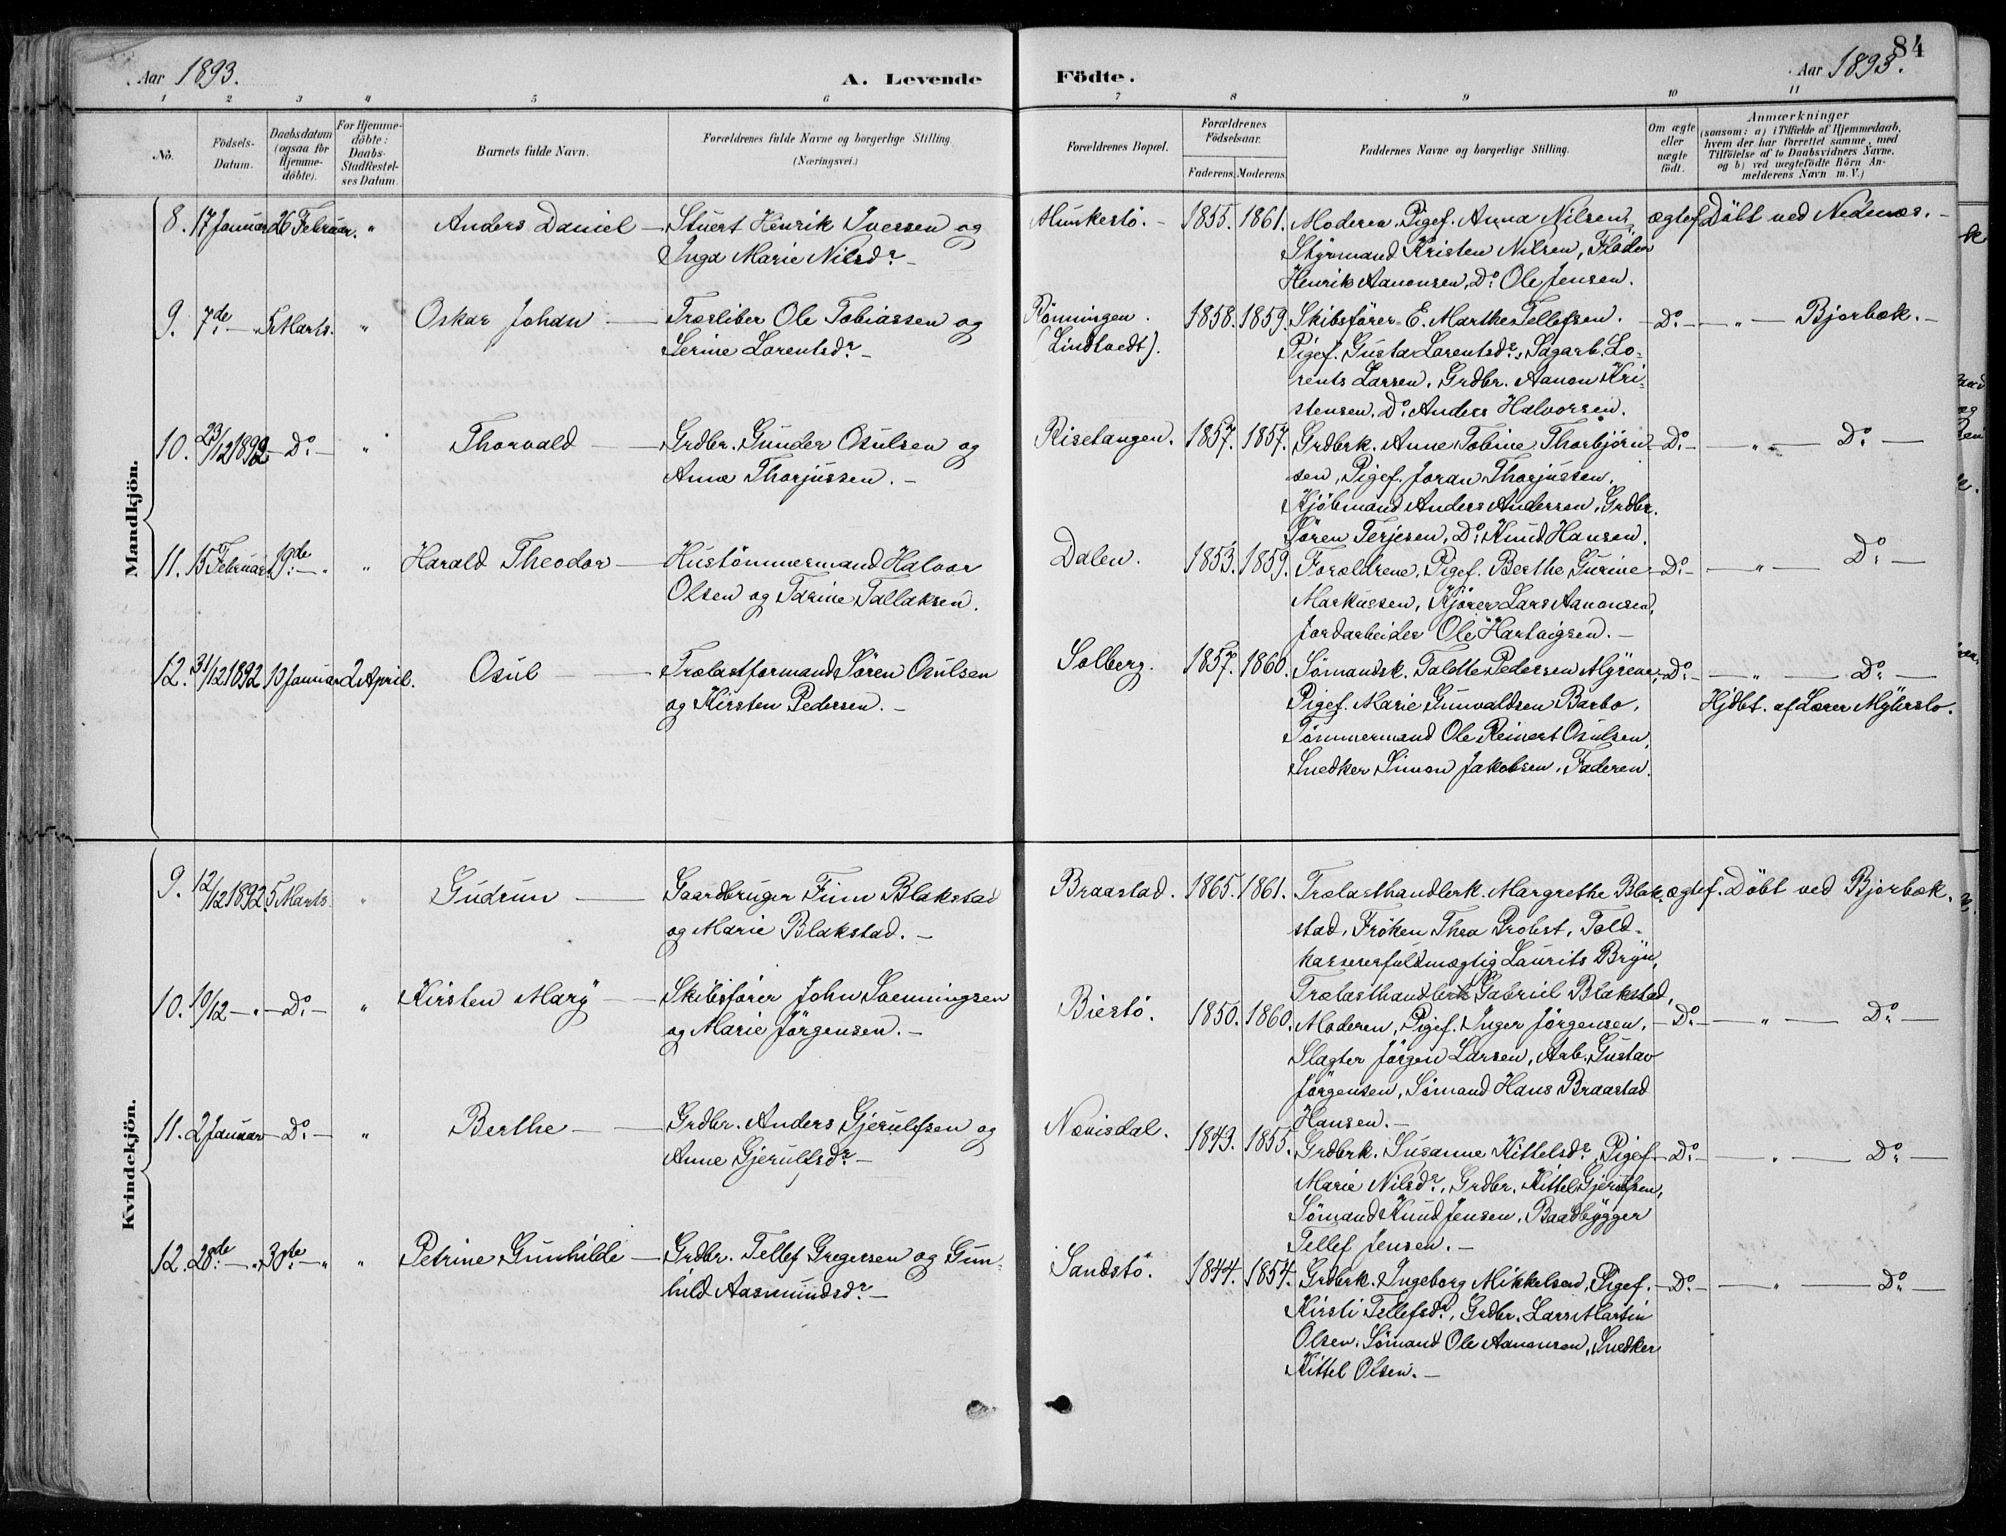 84
Aar 1893.
A. Levende Födte.
Aar 1893.
1 2 3 4 5 6 7 8 9 10 11
No.
Födsels-
Datum.
Daabsdatum
(ogsaa for
Hjemme-
döbte).
For Hjemme-
döbte:
Daabs-
Stadfæstel-
ses Datum.
Barnets fulde Navn.
Forældrenes fulde Navne og borgerlige Stilling.
(Næringsvei.)
Forældrenes Bopæl.
Forældrenes
Födselsaar.
Faderens. Moderens.
Faddernes Navne og borgerlige Stilling.
Om ægte
eller
uægte
födt.
Anmærkninger
(saasom: a) i Tilfælde af Hjemmedaab,
hvem der har forrettet samme, med
Tilföielse af to Daabsvidners Navne,
og b) ved uægtefödte Börn An-
melderens Navn m. V.)
Mandkjön.
8. 17 Januar 26 Februar. " Anders Daniel — Stuert Henrik Iversen og
Inga Marie Nilsdr. —
Munkestö. — 1855. 1861. Moderen, Pigef. Anna Nilsen,
Styrmand Kristen Nilsen, Fløder
Henrik Aanonsen, Do. Ole Jensen.
ægtef. Döbt ved Nedenæs. —
9. 7de — 5 Marts. " Oskar Johan — Træsliber Ole Tobiassen og
Serine Lorentsdr. —
Rönningen.
(Lindtvedt).
1858. 1859. Skibsförer E. Marthes Tellefsen.
Pigef. Gusta Lorentsdr., Sagarb. Lo-
rents Larsen, Grdbr. Aanon Kri-
stensen, Do. Anders Halvorsen.
— Do. — — " — Bjorbæk. —
10. 23/12 1892 — Do. — " Thorvald — Grdbr. Gunder Osulsen og
Anne Thorjussen. —
Risetangen. 1857. 1857. Grdbrk. Anne Tobine Thorbjörn-
sen, Pigef. Joran Thorjussen,
Kjöbmand Anders Andersen, Grdbr.
Sören Terjesen, Do. Knud Hansen.
Do. — — " — Do. —
11. 15 Februar 19de. — " Harald Theodor — Hustömmermand Halvor
Olsen og Tarine Tallaksen.
Dalen. 1853. 1859. Forældrene, Pigef. Berthe Gurine
Markussen, Kjörer Lars Aanonsen,
Jordarbeider Ole Hartvigsen. —
Do. — — " — Do. —
12. 31/12 1892 10 Januar 2 April. Osul — Trælastformand Sören Osulsen
og Kirsten Pedersen. —
Solberg. 1857. 1860. Sömandsk. Talette Pedersen Myrene,
Pigef. Marie Gunvaldsen Barbo,
Tömmermand Ole Reinert Osulsen,
Snedker Simon Jakobsen, Faderen.
Do. — — " — Do. —
Hjdbt. af Lærer Myherslo.
Kvindekjön.
9. 12/12 1892 5 Marts " Gudrun — Gaardbruger Finn Blakstad
og Marie Blakstad. —
Braastad. 1865. 1861. Trælasthandlerk. Margrethe Blak-
stad, Fröken Thea Probst, Told-
kassererfuldmægtig Laurits Bryn,
Trælasthandler Gabriel Blakstad,
ægtef. Döbt ved Bjorbæk.
10. 10/12 — " — Do. — " Kirsten Mary — Skibsförer John Svenningsen
og Marie Jörgensen. —
Biestö. 1850. 1860. Moderen, Pigef. Inger Jörgensen,
Slagter Jörgen Larsen, Arb. Gustav
Jörgensen, Sömand Hans Braastad
Hansen. —
— Do. — — " — Do. —
11. 2 Januar — Do. — " Berthe — Grdbr. Anders Gjerulfsen og
Anne Gjerulfsdr. —
Nævisdal. 1843. 1855. Grdbrk. Susanne Kittelsdr., Pigef.
Marie Nilsdr., Grdbr. Kittel Gjerulfsen,
Sömand Knud Jensen, Baadbygger
Tellef Jensen. —
— Do. — — " — Do. —
12. 28de. — " 30te. — " " Petrine Gunhilde — Grdbr. Tellef Gregersen og Gun-
hild Aasmundsdr. —
Sandstö. 1844. 1854. Grdbrk. Ingeborg Mikkelsen, Pigef.
Kirsti Tellefsdr., Grdbr. Lars Martin
Olsen, Sömand Ole Aanonsen, Snedker
Kittel Olsen. —
— Do. — — " — Do. —